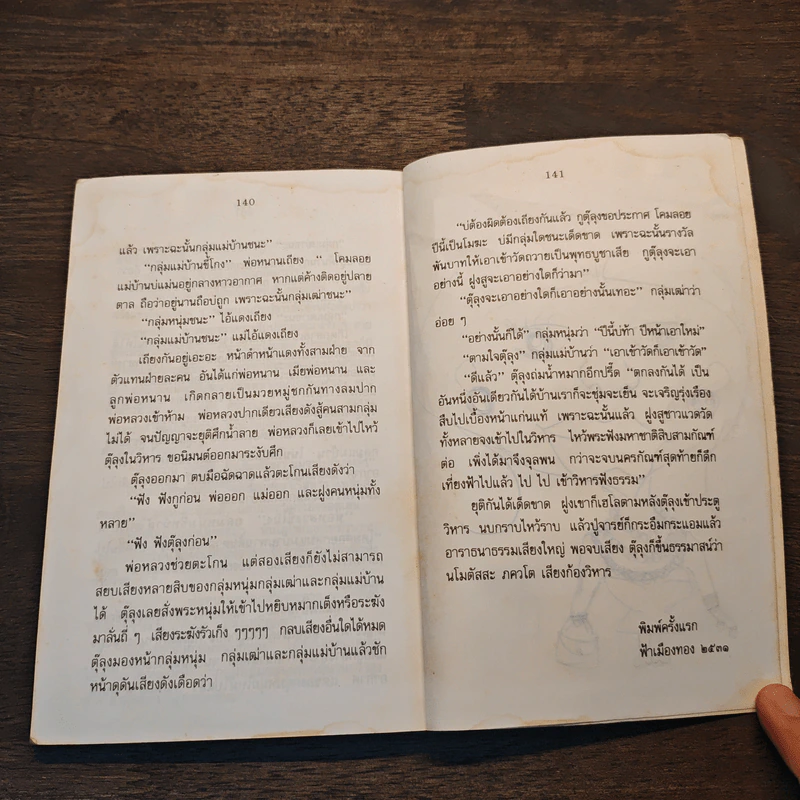 140
แล้ว เพราะฉะนั้นกลุ่มแม่บ้านชนะ”
“กลุ่มแม่บ้านขี้โกง” พ่อหนานเถียง “ โคมลอย
แม่บ้านบ่แม่นอยู่กลางหาวอากาศ หากแต่ค้างติดอยู่ปลาย
ตาล ถือว่าอยู่นานถือบ่ถูก เพราะฉะนั้นกลุ่มเฒ่าชนะ”
“กลุ่มหนุ่มชนะ” ไอ้แดงเถียง
“กลุ่มแม่บ้านชนะ” แม่ไอ้แดงเถียง
เถียงกันอยู่เอะอะ หน้าดำหน้าแดงทั้งสามฝ่าย จาก
ตัวแทนฝ่ายละคน อันได้แก่พ่อหนาน เมียพ่อหนาน และ
ลูกพ่อหนาน เกิดกลายเป็นมวยหมู่ชกกันทางลมปาก
พ่อหลวงเข้าห้าม พ่อหลวงปากเดียวเสียงดังสู้คนสามกลุ่ม
ไม่ได้ จนปัญญาจะยุติศึกน้ำลาย พ่อหลวงก็เลยเข้าไปไหว้
ตุ๊ลุงในวิหาร ขอนิมนต์ออกมาระงับศึก
ตุ๊ลุงออกมา ตบมือฉัดฉาดแล้วตะโกนเสียงดังว่า
“ฟัง ฟังกูก่อน พ่อออก แม่ออก และฝูงคนหนุ่มทั้ง
หลาย”
“ฟัง ฟังตุ๊ลุงก่อน”
พ่อหลวงช่วยตะโกน แต่สองเสียงก็ยังไม่สามารถ
สยบเสียงหลายสิบของกลุ่มหนุ่มกลุ่มเฒ่าและกลุ่มแม่บ้าน
ได้ ตุ๊ลุงเลยสั่งพระหนุ่มให้เข้าไปหยิบหมากเต็งหรือระฆัง
มาลั่นถี่ ๆ เสียงระฆังรัวเก็ง ๆๆๆๆๆ กลบเสียงอื่นใดได้หมด
ตุ๊ลุงมองหน้ากลุ่มหนุ่ม กลุ่มเฒ่าและกลุ่มแม่บ้านแล้วชัก
หน้าดุดันเสียงดังเดือดว่า
141
“บ่ต้องผิดต้องเถียงกันแล้ว กูตุ๊ลุงขอประกาศ โคมลอย
ปีนี้เป็นโมฆะ บ่มีกลุ่มใดชนะเด็ดขาด เพราะฉะนั้นรางวัล
พันบาทให้เอาเข้าวัดถวายเป็นพุทธบูชาเสีย กูตุ๊ลุงจะเอา
อย่างนี้ ฝูงสูจะเอาอย่างใดก็ว่ามา”
“ตุ๊ลุงจะเอาอย่างใดก็เอาอย่างนั้นเทอะ” กลุ่มเฒ่าว่า
อ่อย ๆ
“อย่างนั้นก็ได้” กลุ่มหนุ่มว่า “ปีนี้บ่ท้า ปีหน้าเอาใหม่”
“ตามใจตุ๊ลุง” กลุ่มแม่บ้านว่า “เอาเข้าวัดก็เอาเข้าวัด”
“ดีแล้ว” ตุ๊ลุงถ่มน้ำหมากอีกปรี๊ด “ตกลงกันได้ เป็น
อันหนึ่งอันเดียวกันได้บ้านเราก็จะชุ่มจะเย็น จะเจริญรุ่งเรือง
สืบไปเบื้องหน้าแก่นแท้ เพราะฉะนั้นแล้ว ฝูงสูชาวแดวัด
ทั้งหลายจงเข้าไปในวิหาร ไหว้พระฟังมหาชาติสิบสามกัณฑ์
ต่อ เพิ่งได้มาจึงจุลพน กว่าจะจบนครกัณฑ์สุดท้ายก็ดึก
เที่ยงฟ้าไปแล้ว ไป ไป เข้าวิหารฟังธรรม”
ยุติกันได้เด็ดขาด ฝูงเขาก็เฮโลตามหลังตุ๊ลุงเข้าประตู
วิหาร นบกราบไหว้ราบ แล้วปู่จารย์ก็กระอึมกระแอมแล้ว
อาราธนาธรรมเสียงใหญ่ พอจบเสียง ตุ๊ลุงก็ขึ้นธรรมาสน์ว่า
นโมตัสสะ ภควโต เสียงก้องวิหาร
พิมพ์ครั้งแรก
ฟ้าเมืองทอง ๒๕๓๑